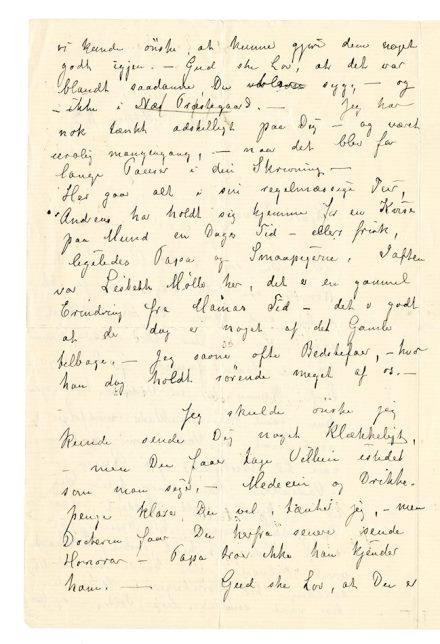 vi kunde önske at kunne gjøre dem noget
godt igjen. — Gud ske Lov, at det var
blandt saadanne, Du blev syg, — og
— ikke i Næs Præstegaard. — Jeg har
nok tænkt adskilligt paa Dig — og været
urolig mangengang, — naar det blev for
lange Pauser i din Skrivning —
Her gaar alt i sin regelmæssige Tur,
Andreas har holdt sig hjemme for en Kvise
paa Mund en Dags Tid — ellers frisk,
ligeledes Papa og Smaapigerne. Iaften
var Lisbeth Mölle her, det er en gammel
Erindring fra Mamas Tid — det er godt
at der dog er noget af det Gamle
tilbage. — Jeg savner ofte Bedstefar, — hvor
han dog holdt rørende meget af os. —
Jeg skulde önske jeg
kunde sende Dig noget Klækkeligt,
— men Du faar tage Villien istedet
som man siger. — Medecin og Drikke-
penge klarer Du vel, tænker jeg, — men
Doctoren faar Du herfra senere sende
Honorar — Papa tror ikke han kjender
ham. — Gud ske Lov, at Du er